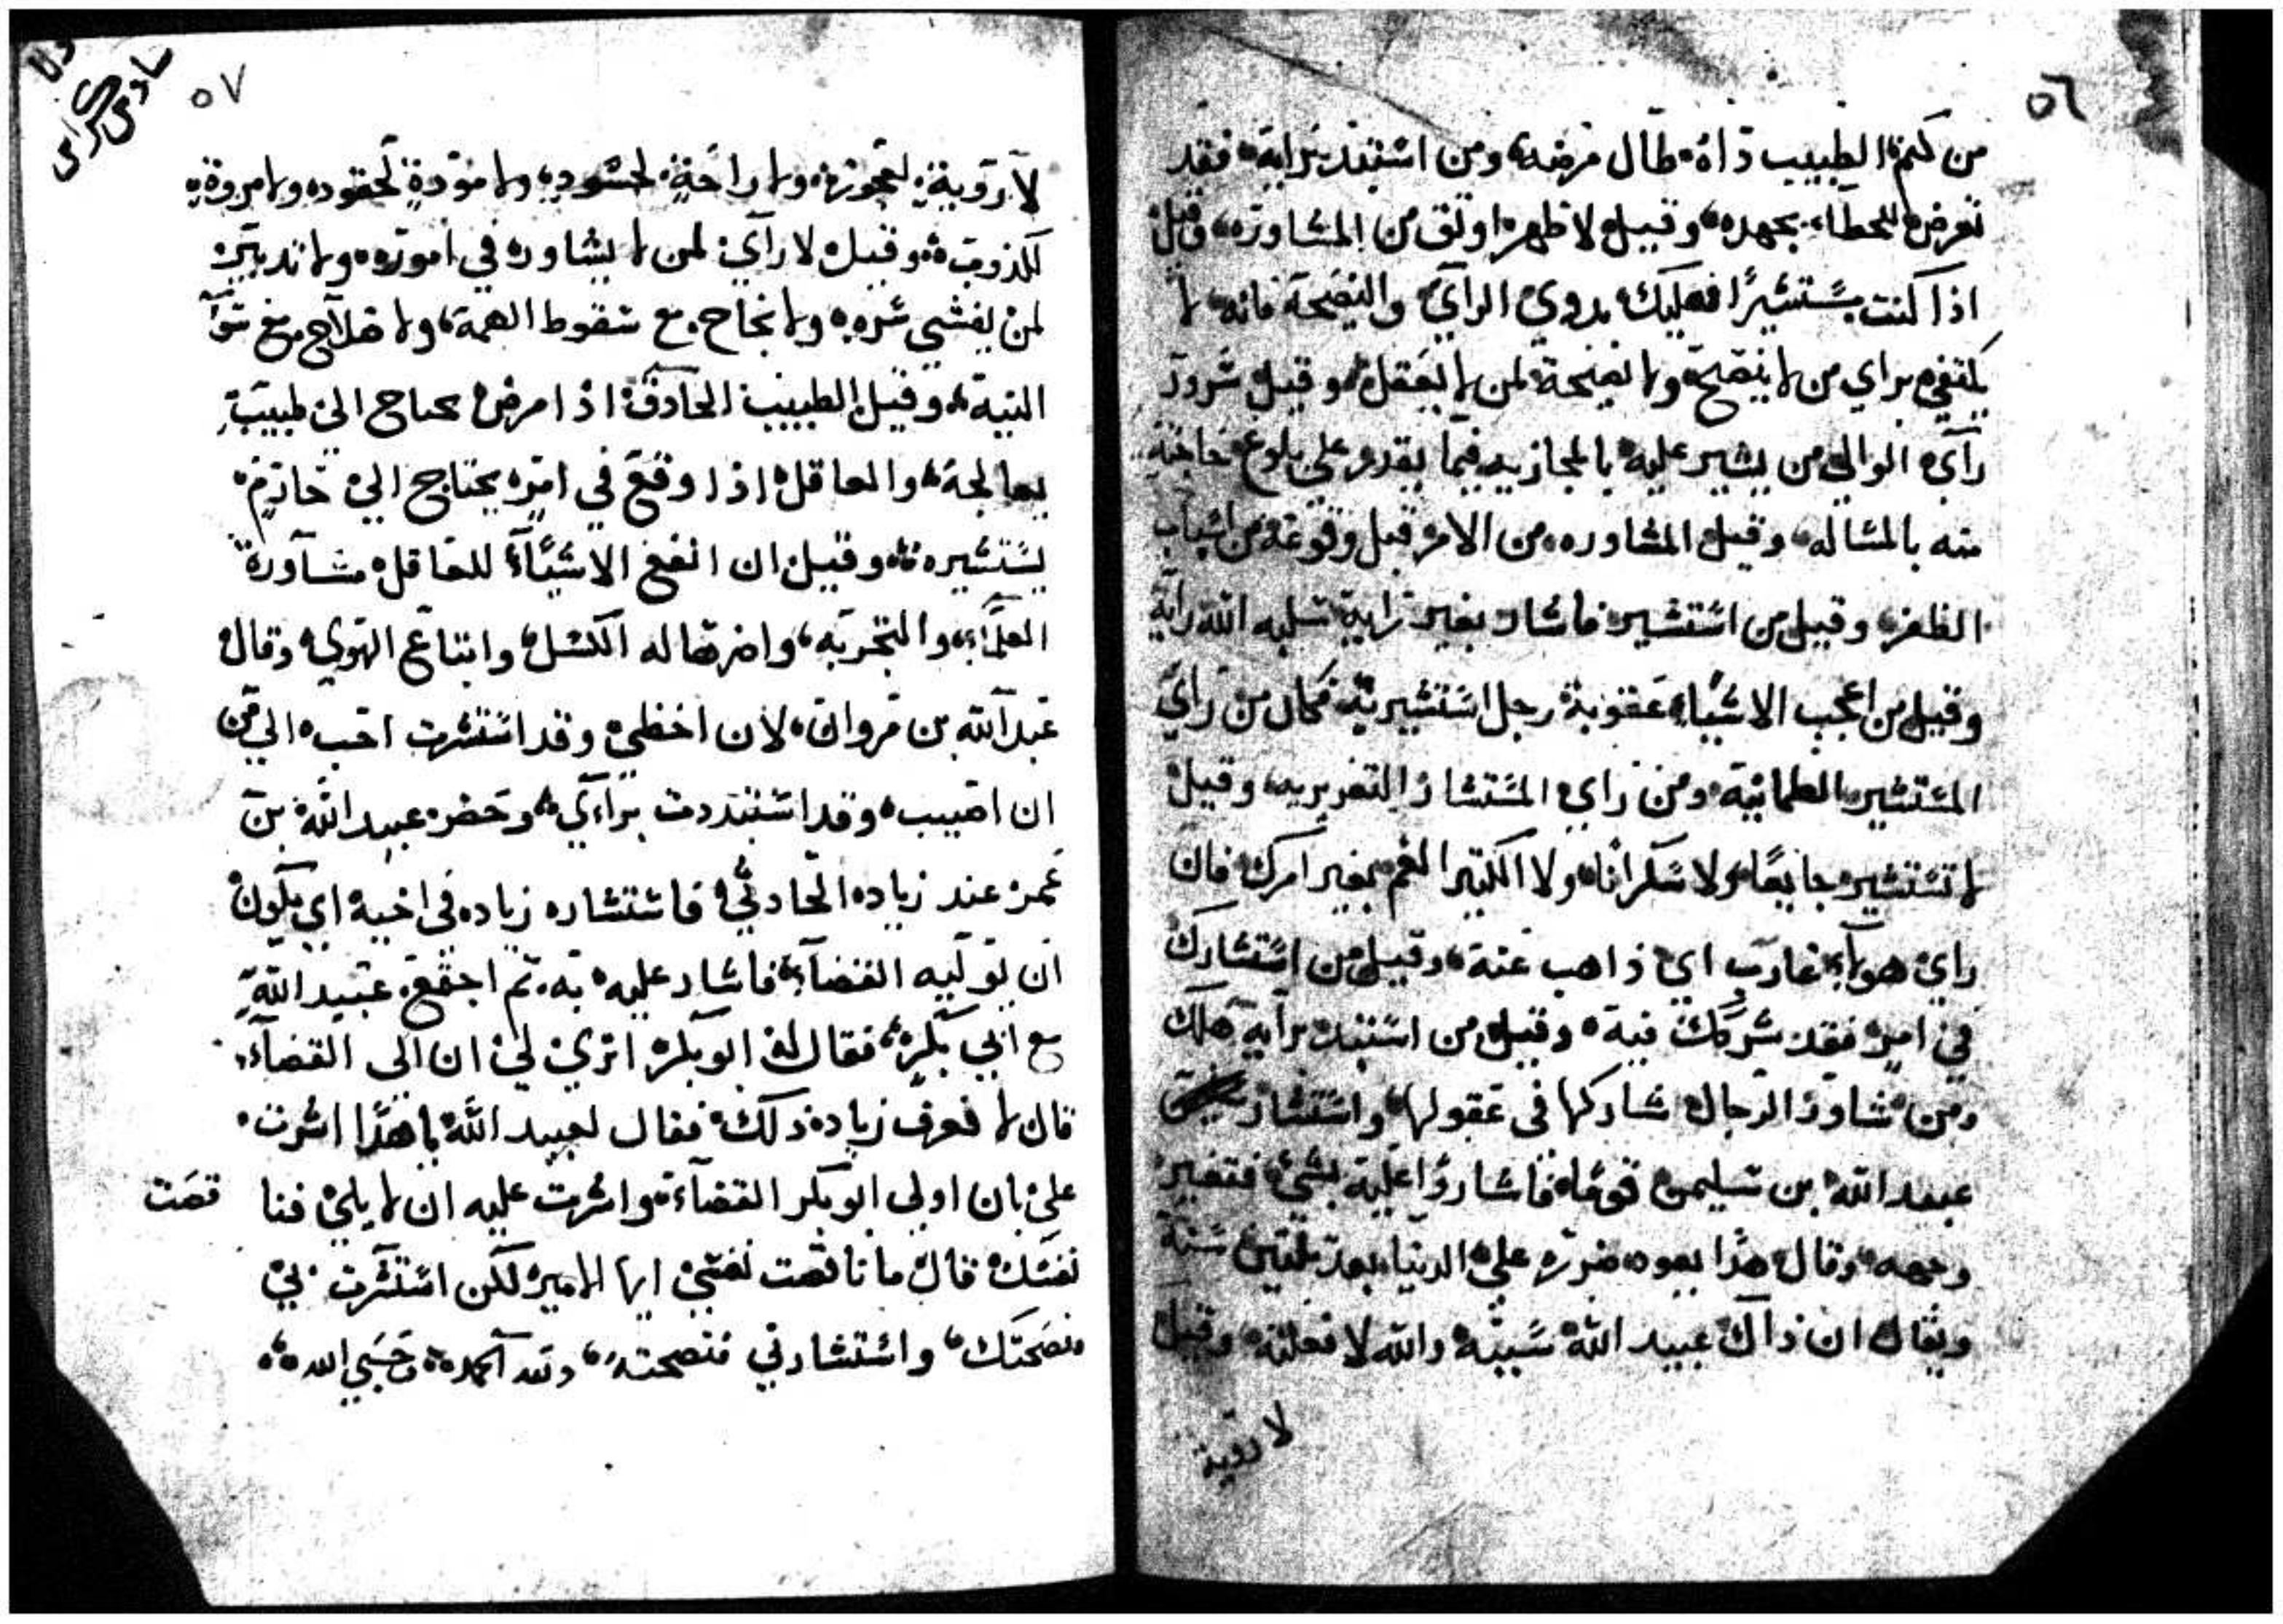 ٥٦
من كتم الطبيب داه طال مرضه ومن استبد برايه فقد
تعرض للخطاء بجهده وقيل لا ظهر اوثق من المشاوره وقيل
اذا كنت مستشيرًا فعليك بذوي الراي والنصحة فانه لا
يكتفي براي من لا ينصح ولا نصيحة لمن لا يعقل وقيل
راي الوالي من يشير عليه فيما يقدر على بلوغ حاجته
منه بالمساله وقيل المشاوره من الامر قبل وقوعه من اسباب
الظفر وقيل من استشير فاشار بغير رايه سلبه الله رايه
وقيل من اعجب الاشياء عقوبة رجل استشير به فكان من راي
المستشير الطمانية ومن راي المستشار التغرير به وقيل
لا تستشير جايعًا ولا سكرانًا ولا الكثير الغم بغير امرك فان
راي هولاء عازب اي ذاهب عنه وقيل من استشارك
في امره فقد شركك فيه وقيل من استبد برايه هلك
ومن شاور الرجال شاركها في عقولها واستشار
عبيد الله بن سليمن قومًا فاشاروا عليه بشي فتغير
وجهه وقال هذا يعود ضرره على الدنيا بعد سنة
ويقال ان ذاك عبيد الله سببه والله لا فعلته وقيل
لا روية
٥٧
لا روية لعجوز ولا راحة لحسود ولا مودة لحقود ولا مروة
لكذوب وقيل لا راي لمن لا يشاور في اموره ولا تدبير
لمن يفشي سره ولا نجاح مع سقوط الهمة ولا صلاح مع سوا
النية وقيل الطبيب الحادق اذا مرض يحتاج الى طبيب
يعالجه والعاقل اذا وقع في امر يحتاج الي حازم
يستشيره وقيل ان انفع الاشياء للعاقل مشاورة
العلماء والتجربه واضرها له الكسل واتباع الهوي وقال
عبد الله بن مروان لان اخطي وقد استشرت احب الي من
ان اصيب وقد استبددت براءي وحضر عبيد الله بن
عمر عند زياد الحادثي فاستشاره زياد في اخيه اي يكون
ان يوليه القضاء فاشار عليه به ثم اجتمع عبيد الله
مع ابي بكر فقال له ابو بكر اترى لي ان الى القضاء
قال لا فعرف زياد ذلك فقال لعبيد الله يا هذا اشرت
علي بان اولي ابو بكر القضاء واشرت عليه ان لا يلي فنا قصت
نفسك قال ما ناقصت نفسي ايها الامير لكن استشرت بي
فنصحتك واستشارني فنصحته ولله الحمد وحسبي الله